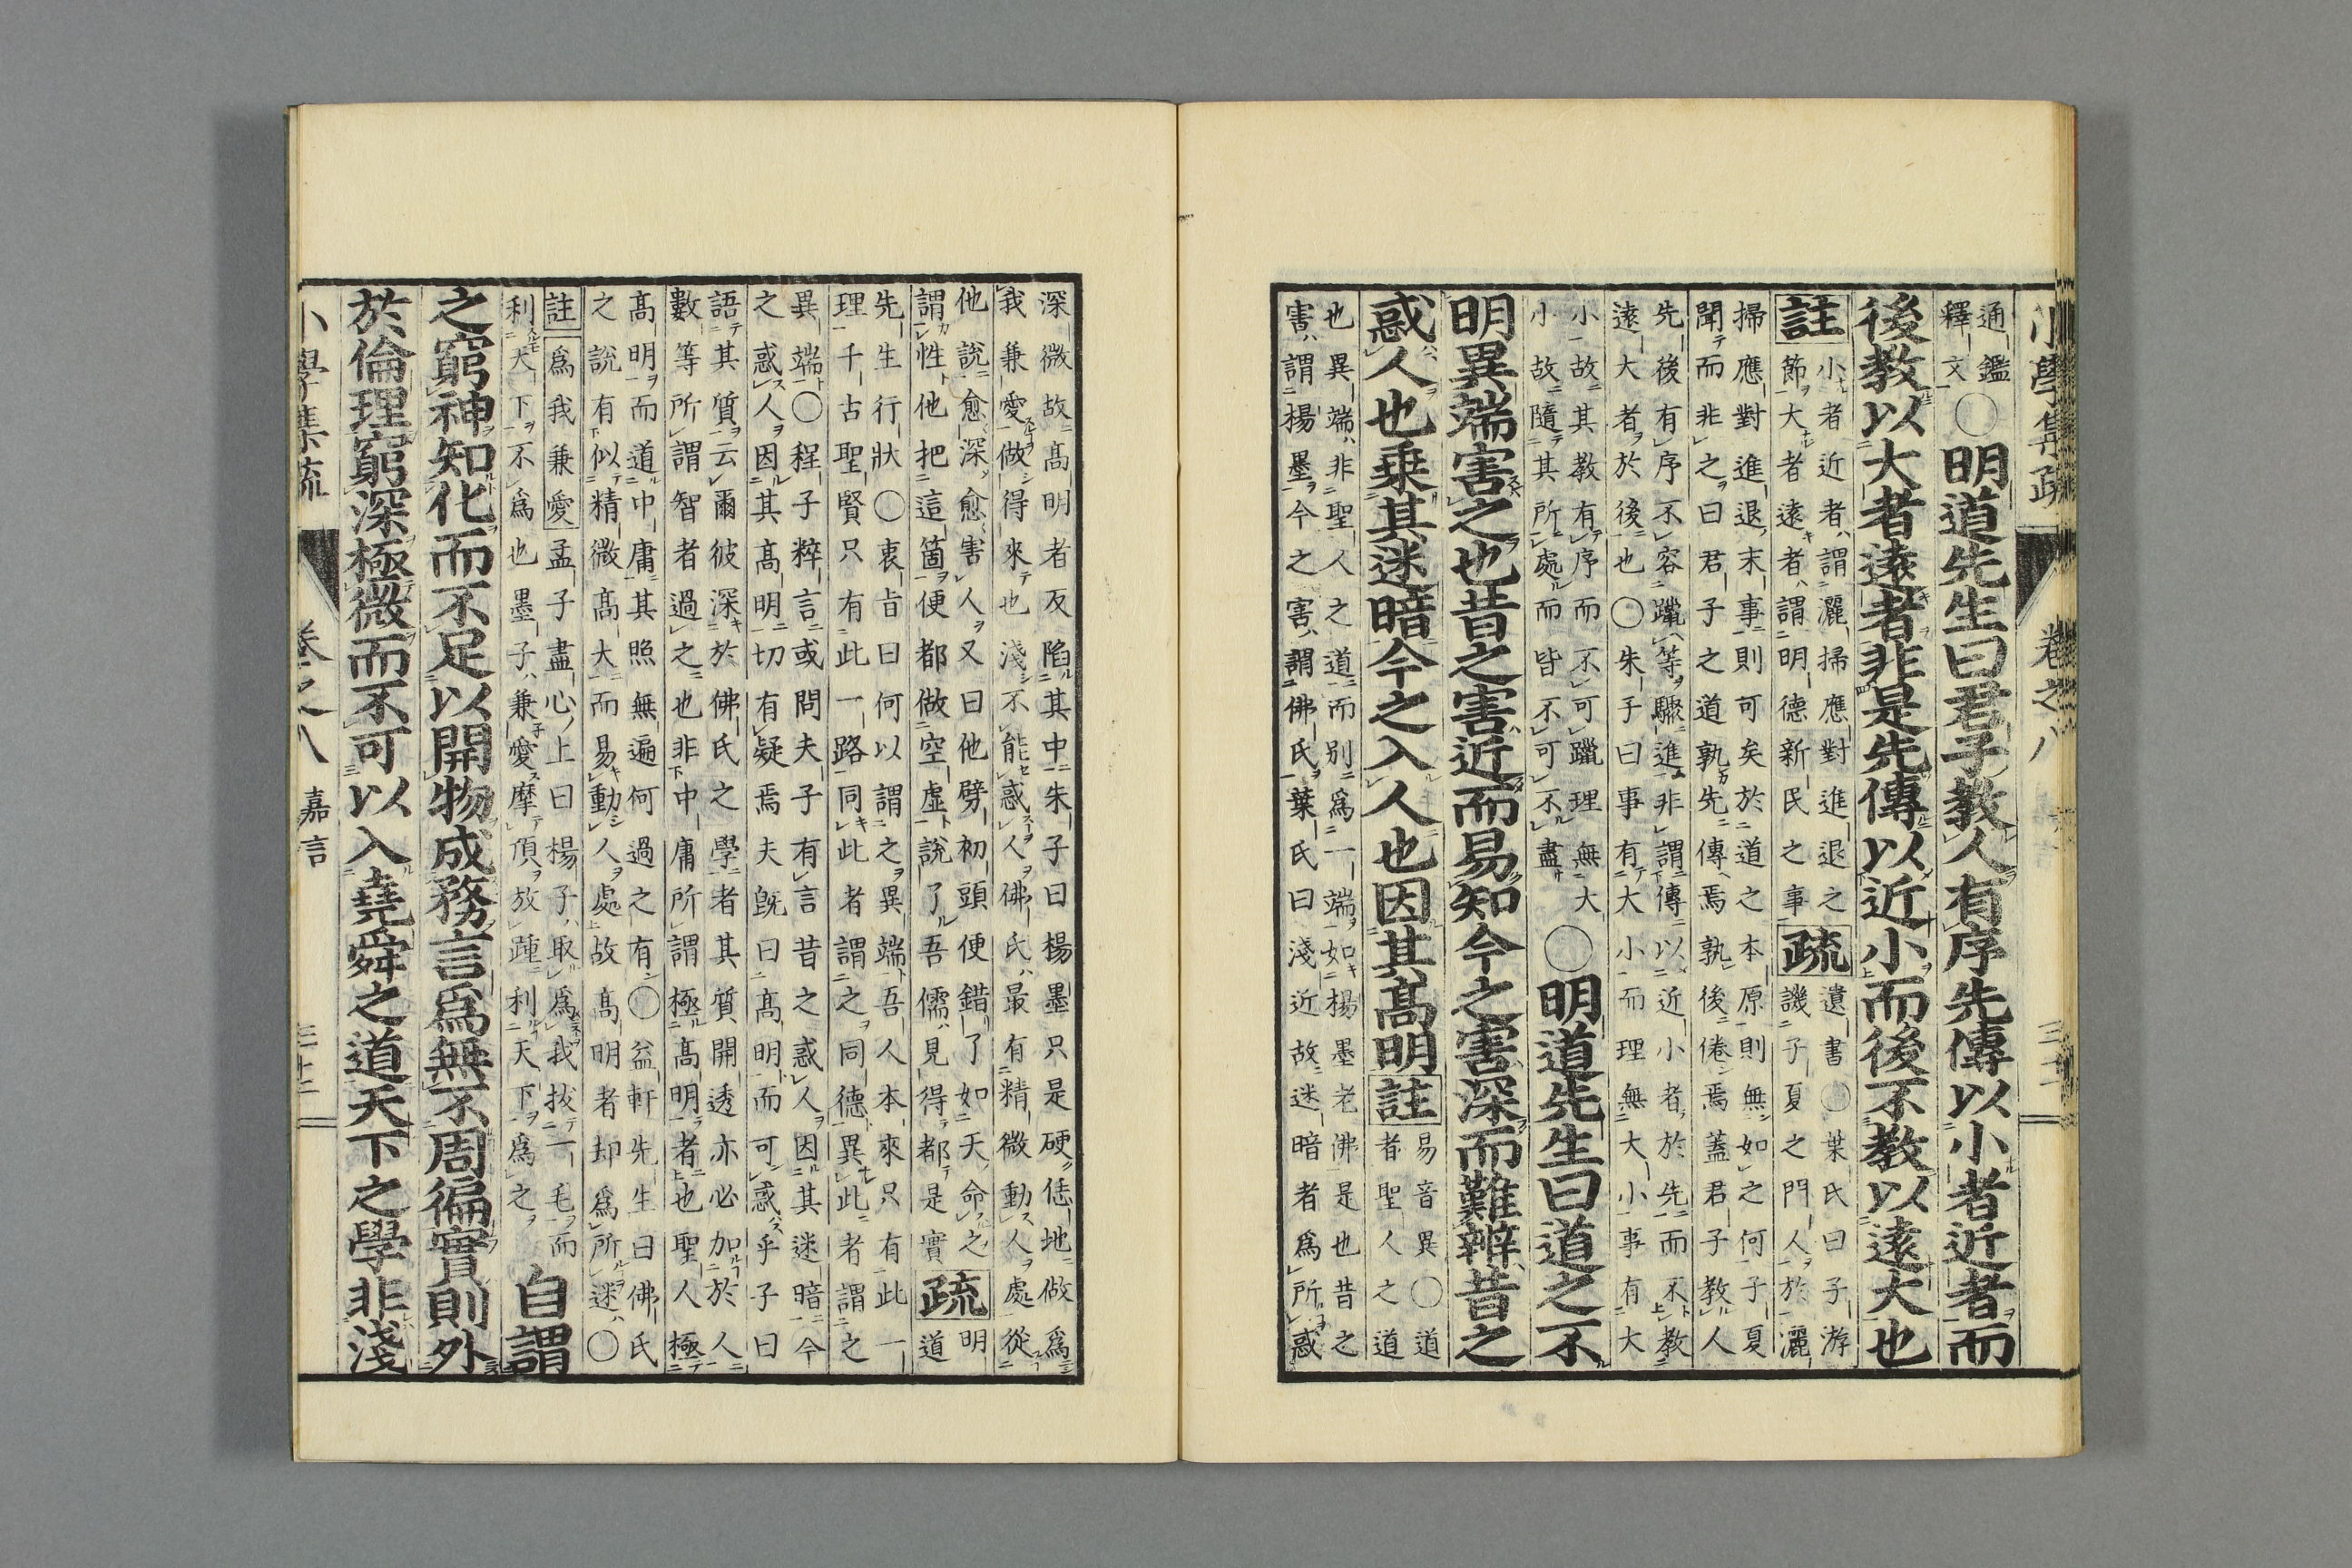 小學集疏 卷之八
通鑑
釋文
○明道先生曰君子教人有序先傳以小者近者而
後教以大者遠者非是先傳以近小而後不教以遠大也
註
小者近者謂灑掃應對進退之
節大者遠者謂明德新民之事
疏
遺書○葉氏曰子游
譏子夏之門人於灑
掃應對進退末事則可矣於道之本原則無如之何子夏
聞而非之曰君子之道孰先傳焉孰後倦焉蓋君子教人
先後有序不容躐等驟進非謂傳以近小者於先而不教
遠大者於後也○朱子曰事有大小而理無大小事有大
小故其教有序而不可躐理無大
小故隨其所處而皆不可不盡
○明道先生曰道之不
明異端害之也昔之害近而易知今之害深而難辨昔之
惑人也乗其迷暗今之入人也因其髙明註
易音異○道
者聖人之道
也異端非聖人之道而別爲一端如楊墨老佛是也昔之
害謂楊墨今之害謂佛氏葉氏曰淺近故迷暗者爲所惑
深微故髙明者反陷其中朱子曰楊墨只是硬恁地做爲
我兼愛做得來也淺不能惑人佛氏最有精微動人處從
他說愈深愈害人又曰他劈初頭便錯了如天命之
謂性他把這箇便都做空虛說了吾儒見得都是實
疏
明
道
先生行狀○衷旨曰何以謂之異端吾人本來只有此一
理千古聖賢只有此一路同此者謂之同德異此者謂之
異端○程子粹言或問夫子有言昔之惑人因其迷暗今
之惑人因其髙明切有疑焉夫既曰髙明而可惑乎子曰
語其質云爾彼深於佛氏之學者其質開透亦必加於人
數等所謂智者過之也非中庸所謂極髙明者也聖人極
髙明而道中庸其照無遍何過之有○益軒先生曰佛氏
之說有似精微髙大而易動人處故髙明者却爲所迷○
註爲我兼愛孟子盡心上曰楊子取爲我拔一毛而
利天下不爲也墨子兼愛摩頂放踵利天下爲之
自謂
之窮神知化而不足以開物成務言爲無不周徧實則外
於倫理窮深極微而不可以入堯舜之道天下之學非淺
小學集疏 卷之八 嘉言